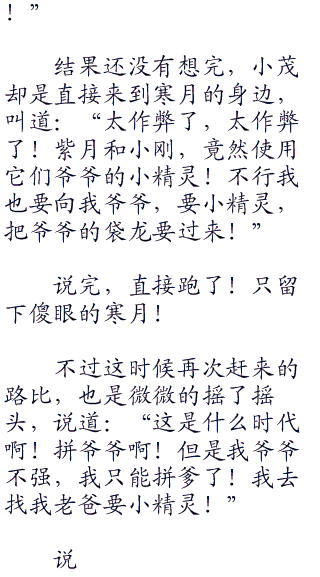 ！”
结果还没有想完，小茂
却是直接来到寒月的身边，
叫道：“太作弊了，太作弊
了！紫月和小刚，竟然使用
它们爷爷的小精灵！不行我
也要向我爷爷，要小精灵，
把爷爷的袋龙要过来！”
说完，直接跑了！只留
下傻眼的寒月！
不过这时候再次赶来的
路比，也是微微的摇了摇
头，说道：“这是什么时代
啊！拼爷爷啊！但是我爷爷
不强，我只能拼爹了！我去
找我老爸要小精灵！”
说